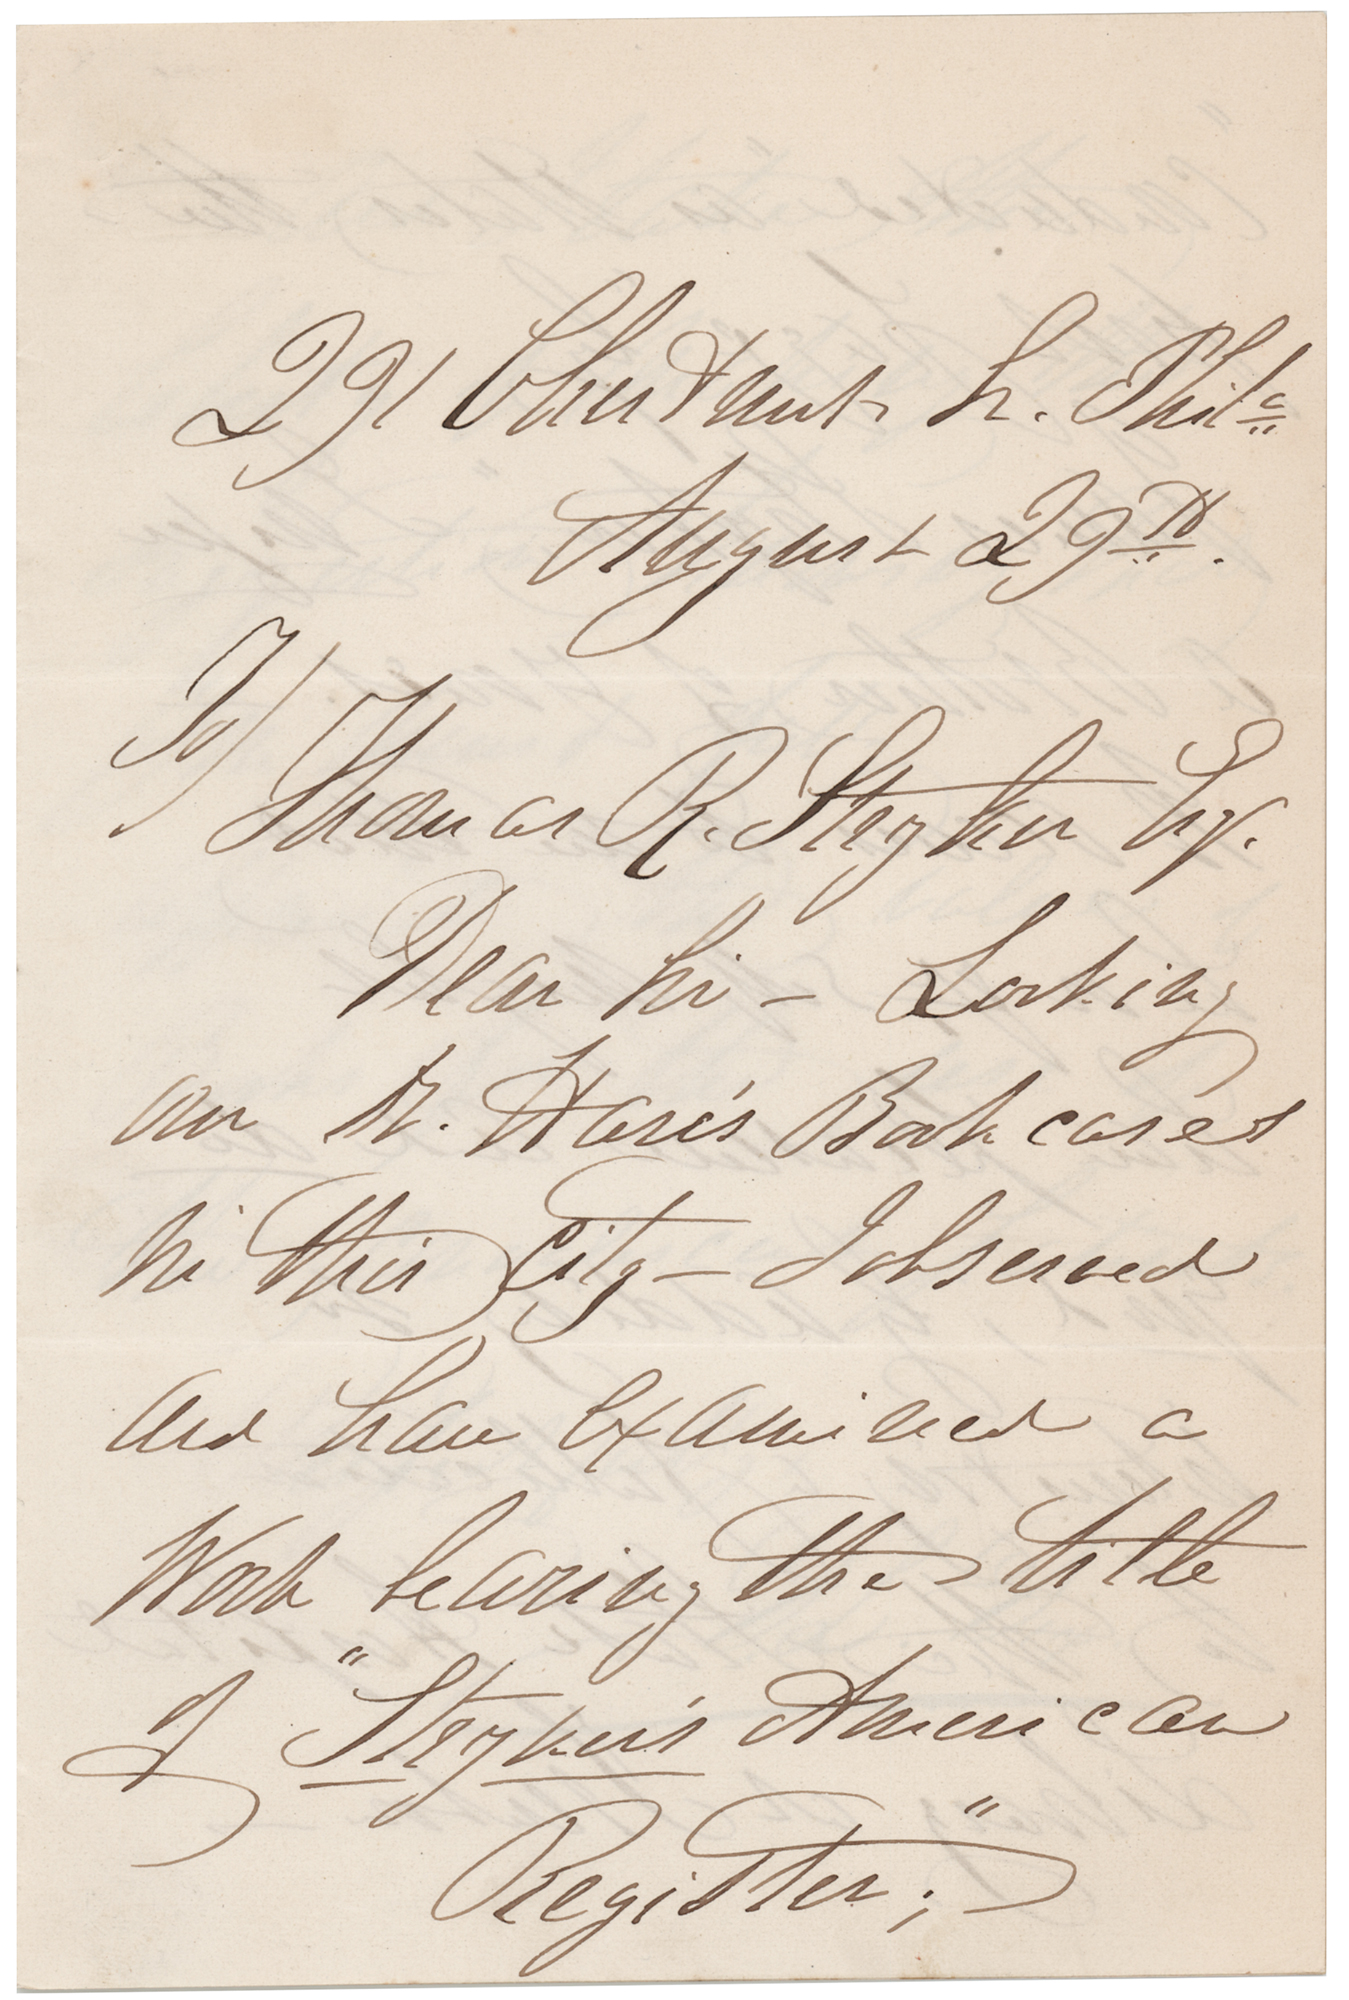 291 Chestnut St. Phila
August 29th.
To/
Thomas R. Stryker Esq.
Dear Sir – Looking
over Dr. Hare's Book cases
in this City – I observed
and have examined a
Work bearing the title
of "Stryker's American
Register;"